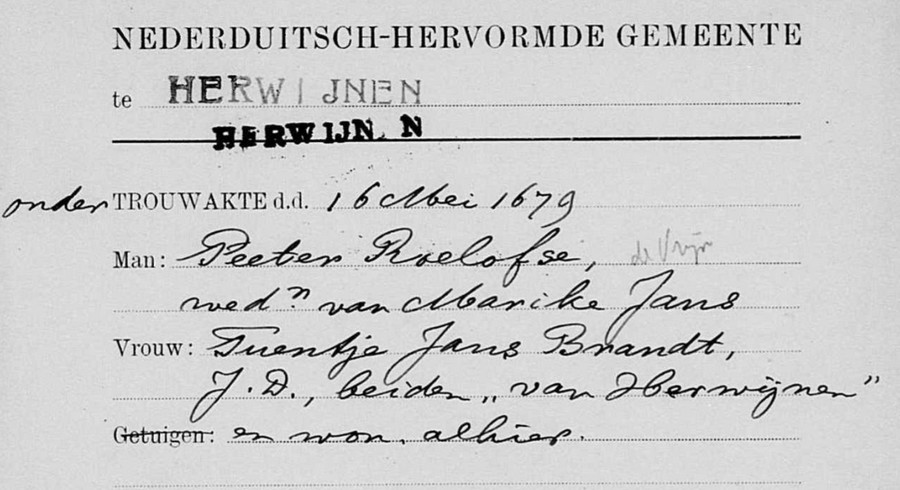 NEDERDUITSCH-HERVORMDE GEMEENTE
te HERWIJNEN
HERWIJN N
onder TROUWAKTE d.d. 16 Mei 1679
Man: Peeter Roelofse, de Vrijr
wedn van Marike Jans
Vrouw: Teuntje Jans Brandt,
J.D., beiden „van Herwijnen”
Getuigen: en won. alhier.